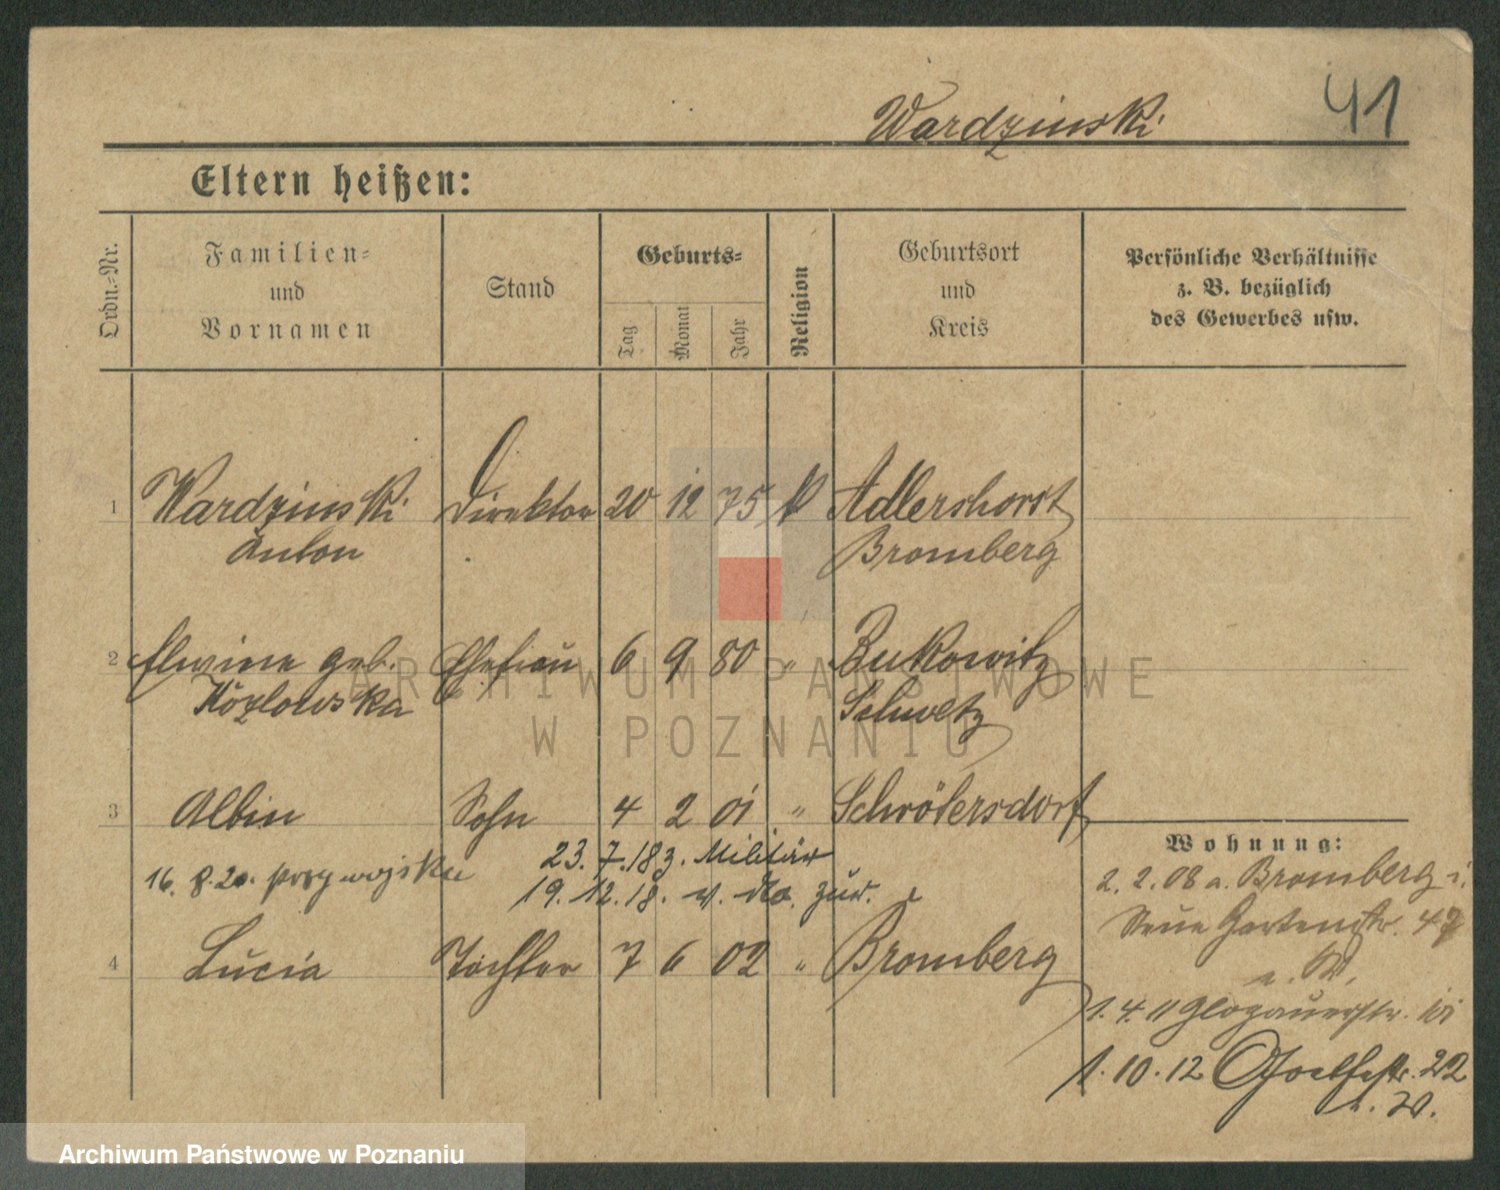 Wardzinski
41
Eltern heißen:
Ordn.-Nr.
Familien-
und
Vornamen
Stand
Geburts-
Tag
Monat
Jahr
Religion
Geburtsort
und
Kreis
Persönliche Verhältnisse
z. B. bezüglich
des Gewerbes usw.
1 Wardzinski Direktor 20 12 75 k Adlershorst
Anton Bromberg
2 Elwine geb. Ehefrau 6 9 80 " Bukowitz
Kozlowska Schwetz
3 Albin Sohn 4 2 01 " Schrötersdorf
23. 7. 18 z. Militär
16. 8. 20.
19. 12. 18. v. do. zur.
4 Lucia Tochter 7 6 02 " Bromberg
Wohnung:
2. 2. 08 a. Bromberg i.
Neue Gartenstr.
1. 4. 11 Glogauerstr.
1. 10. 12 22
ARCHIWUM PAŃSTWOWE
W POZNANIU
Archiwum Państwowe w Poznaniu